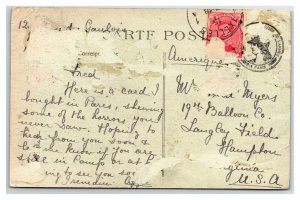 12
Gaulois
RTE POST
Correspon
Amerique
Fred
Here is a card I
bought in Paris, showing
some of the horrors you
never saw. Hoping to
hear from you soon &
to know if you are
still in Camp or at
ing to see you soo
Mr. Myers
19th Balloon Co.
Langley Field
Hampton
ginia
U.S.A